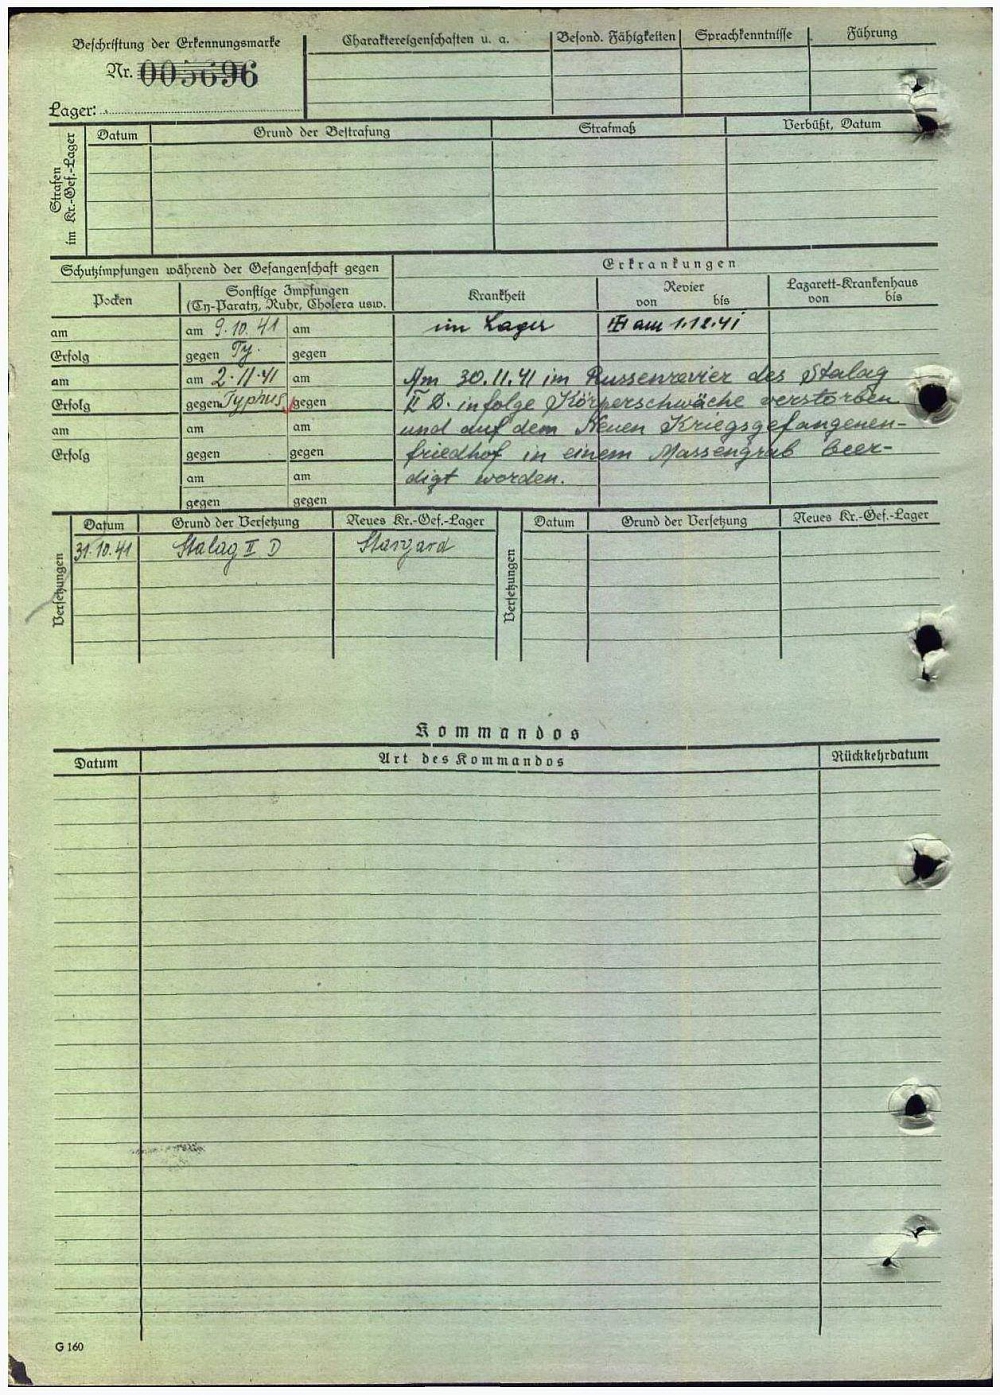 Beschriftung der Erkennungsmarke
Nr. 005696
Lager:
Charaktereigenschaften u. a.
Besond. Fähigkeiten
Sprachkenntnisse
Führung
Strafen im Kr.-Gef.-Lager
Datum
Grund der Bestrafung
Strafmaß
Verbüßt, Datum
Schutzimpfungen während der Gefangenschaft gegen
Erkrankungen
Pocken
Sonstige Impfungen
(Ty-Paraty, Ruhr, Cholera usw.
Krankheit
Revier
von bis
Lazarett-Krankenhaus
von bis
am am 9.10.41 am im Lager am 1.12.41
Erfolg gegen Ty. gegen
am am 2.11.41 am Am 30.11.41 im Russenrevier des Stalag
Erfolg gegen Typhus gegen II D. infolge Körperschwäche verstorben
am am am und auf dem Neuen Kriegsgefangenen-
Erfolg gegen gegen friedhof in einem Massengrab beer-
am am digt worden.
gegen gegen
Versetzungen
Datum Grund der Versetzung Neues Kr.-Gef.-Lager
31.10.41 Stalag II D Stargard
Versetzungen
Datum Grund der Versetzung Neues Kr.-Gef.-Lager
Kommandos
Datum Art des Kommandos Rückkehrdatum
G 160